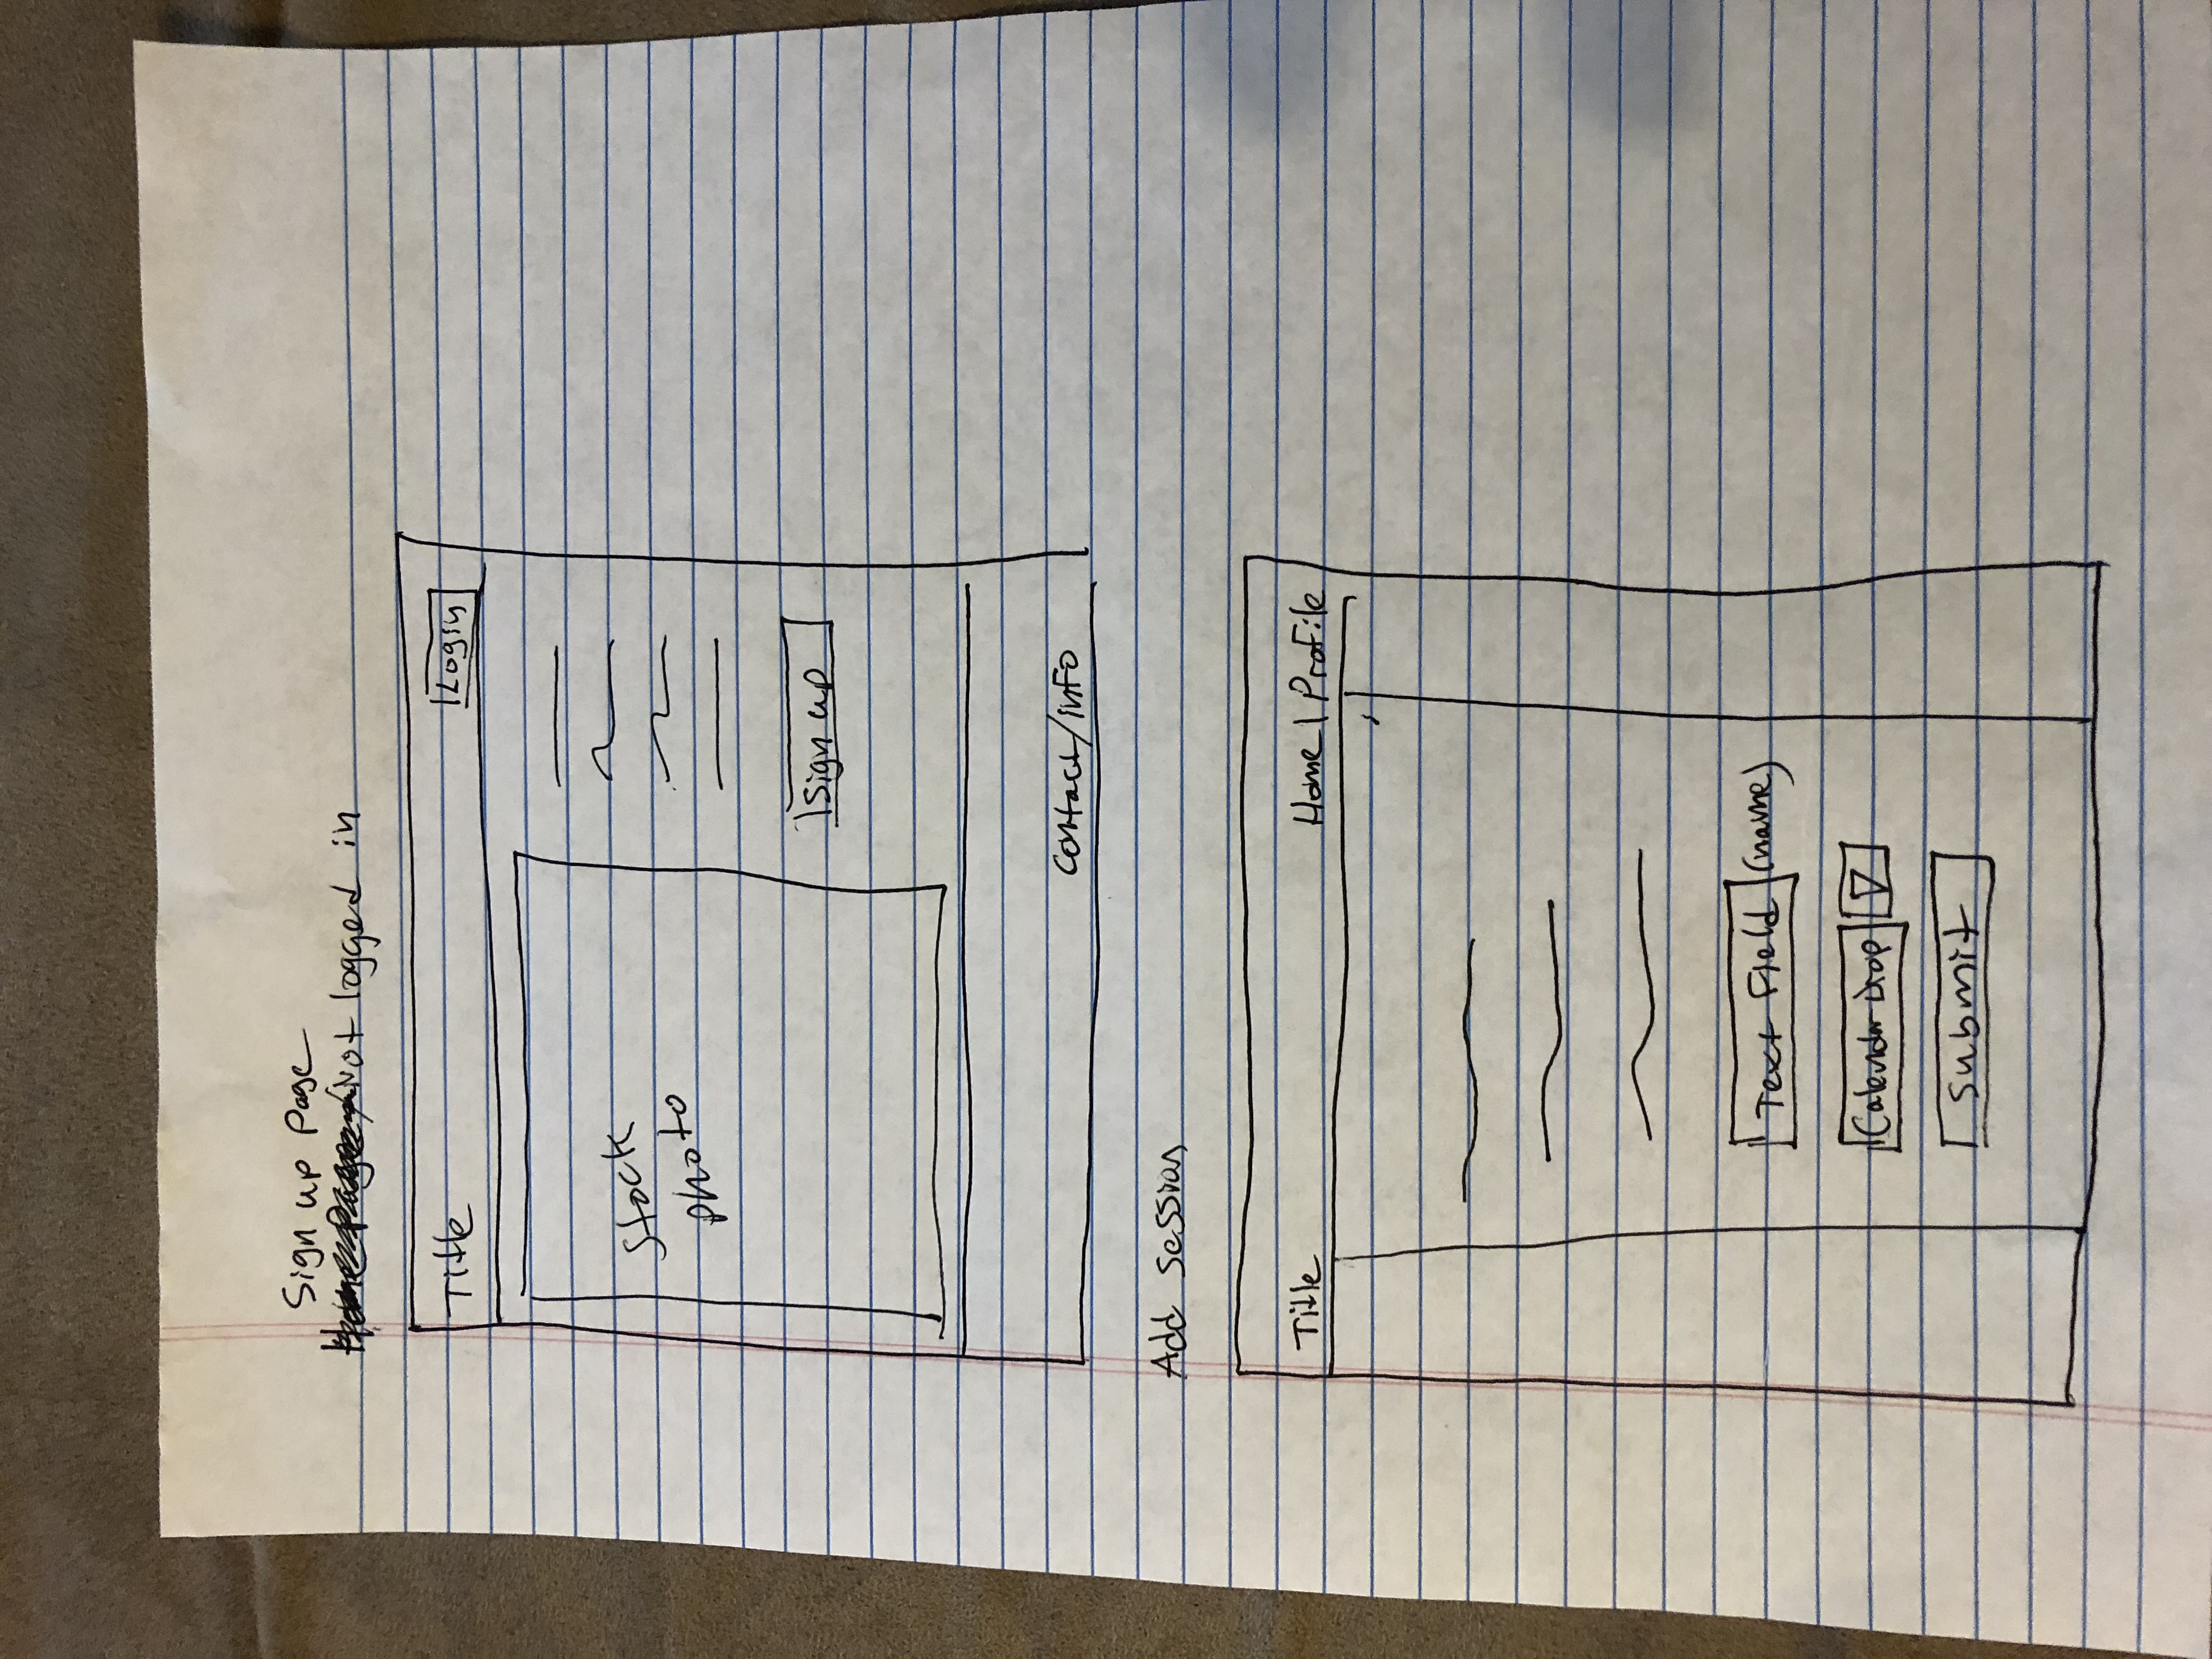 Sign up Page
Home Page/Not logged in
Title
Login
Stock
photo
Sign up
Contact/info
Add session
Title
Home | Profile
Text Field (name)
Calendar Drop
Submit